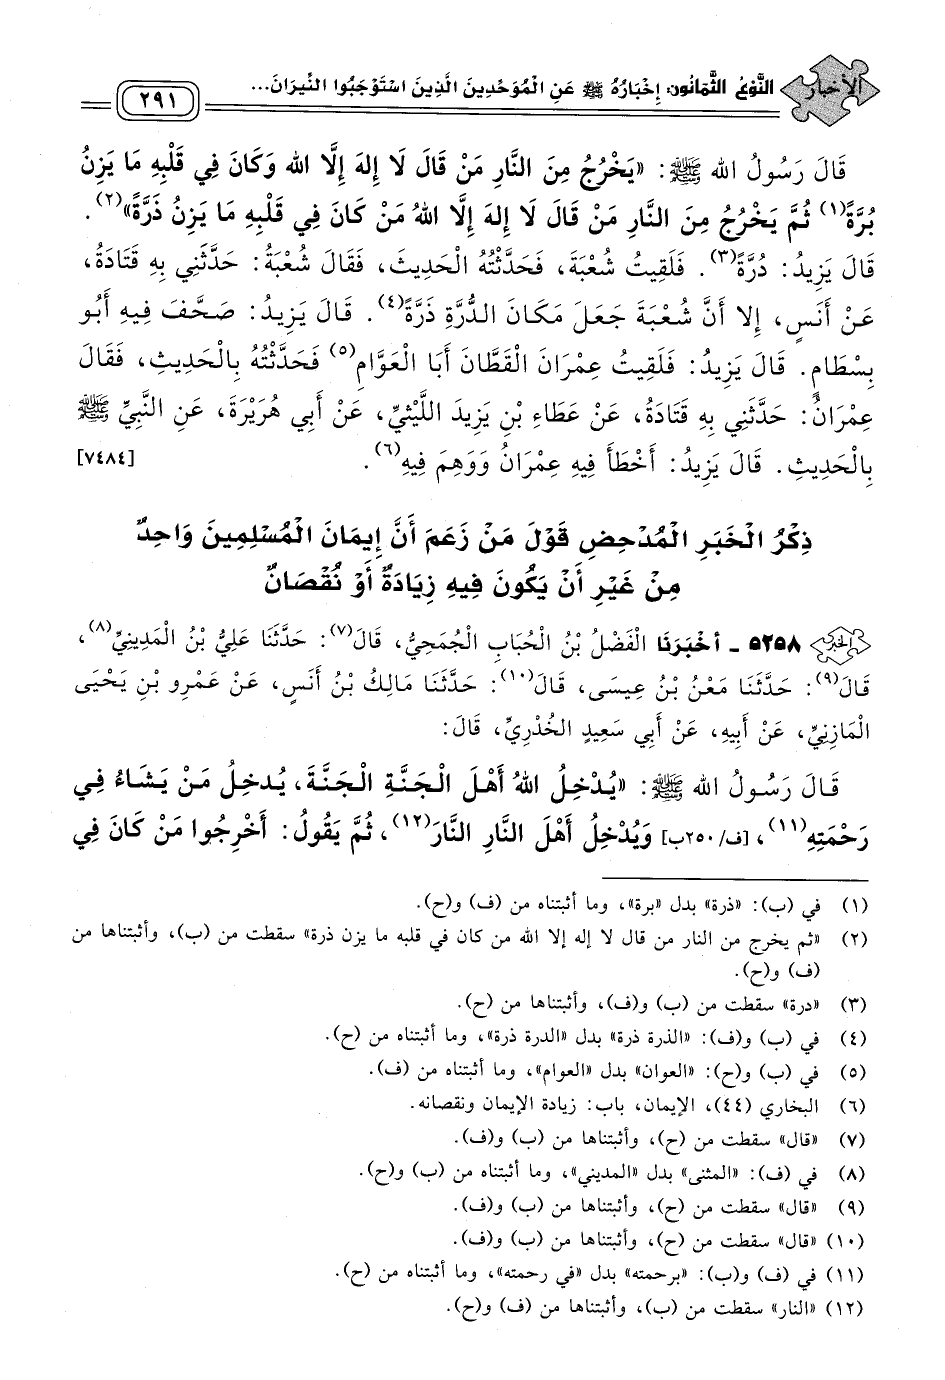 الأخبار
النَّوْعُ الثَّمَانُونَ: إِخْبَارُهُ ﷺ عَنِ الْمُوَحِّدِينَ الَّذِينَ اسْتَوْجَبُوا النِّيرَانَ...
٢٩١
قَالَ رَسُولُ الله ﷺ: «يَخْرُجُ مِنَ النَّارِ مَنْ قَالَ لَا إِلهَ إِلَّا الله وَكَانَ فِي قَلْبِهِ مَا يَزِنُ
بُرَّةً(١) ثُمَّ يَخْرُجُ مِنَ النَّارِ مَنْ قَالَ لَا إِلهَ إِلَّا اللهُ مَنْ كَانَ فِي قَلْبِهِ مَا يَزِنُ ذَرَّةً»(٢).
قَالَ يَزِيدُ: دُرَّةً(٣). فَلَقِيتُ شُعْبَةَ، فَحَدَّثْتُهُ الْحَدِيثَ، فَقَالَ شُعْبَةُ: حَدَّثَنِي بِهِ قَتَادَةُ،
عَنْ أَنَسٍ، إِلا أَنَّ شُعْبَةَ جَعَلَ مَكَانَ الدُّرَّةِ ذَرَّةً(٤). قَالَ يَزِيدُ: صَحَّفَ فِيهِ أَبُو
بِسْطَامٍ. قَالَ يَزِيدُ: فَلَقِيتُ عِمْرَانَ الْقَطَّانَ أَبَا الْعَوَّامِ(٥) فَحَدَّثْتُهُ بِالْحَدِيثِ، فَقَالَ
عِمْرَانُ: حَدَّثَنِي بِهِ قَتَادَةُ، عَنْ عَطَاءِ بْنِ يَزِيدَ اللَّيْثِيِّ، عَنْ أَبِي هُرَيْرَةَ، عَنِ النَّبِيِّ ﷺ
بِالْحَدِيثِ. قَالَ يَزِيدُ: أَخْطَأَ فِيهِ عِمْرَانُ وَوَهِمَ فِيهِ(٦). [٧٤٨٤]
ذِكْرُ الْخَبَرِ الْمُدْحِضِ قَوْلَ مَنْ زَعَمَ أَنَّ إِيمَانَ الْمُسْلِمِينَ وَاحِدٌ
مِنْ غَيْرِ أَنْ يَكُونَ فِيهِ زِيَادَةٌ أَوْ نُقْصَانٌ
الخبر ٥٢٥٨ - أَخْبَرَنَا الْفَضْلُ بْنُ الْحُبَابِ الْجُمَحِيُّ، قَالَ(٧): حَدَّثَنَا عَلِيُّ بْنُ الْمَدِينِيِّ(٨)،
قَالَ(٩): حَدَّثَنَا مَعْنُ بْنُ عِيسَى، قَالَ(١٠): حَدَّثَنَا مَالِكُ بْنُ أَنَسٍ، عَنْ عَمْرِو بْنِ يَحْيَى
الْمَازِنِيِّ، عَنْ أَبِيهِ، عَنْ أَبِي سَعِيدٍ الْخُدْرِيِّ، قَالَ:
قَالَ رَسُولُ الله ﷺ: «يُدْخِلُ اللهُ أَهْلَ الْجَنَّةِ الْجَنَّةَ، يُدْخِلُ مَنْ يَشَاءُ فِي
رَحْمَتِهِ(١١)، [ف/٢٥٠ب] وَيُدْخِلُ أَهْلَ النَّارِ النَّارَ(١٢)، ثُمَّ يَقُولُ: أَخْرِجُوا مَنْ كَانَ فِي
(١) في (ب): «ذرة» بدل «برة»، وما أثبتناه من (ف) و(ح).
(٢) «ثم يخرج من النار من قال لا إله إلا الله من كان في قلبه ما يزن ذرة» سقطت من (ب)، وأثبتناها من
(ف) و(ح).
(٣) «درة» سقطت من (ب) و(ف)، وأثبتناها من (ح).
(٤) في (ب) و(ف): «الذرة ذرة» بدل «الدرة ذرة»، وما أثبتناه من (ح).
(٥) في (ب) و(ح): «العوان» بدل «العوام»، وما أثبتناه من (ف).
(٦) البخاري (٤٤)، الإيمان، باب: زيادة الإيمان ونقصانه.
(٧) «قال» سقطت من (ح)، وأثبتناها من (ب) و(ف).
(٨) في (ف): «المثنى» بدل «المديني»، وما أثبتناه من (ب) و(ح).
(٩) «قال» سقطت من (ح)، وأثبتناها من (ب) و(ف).
(١٠) «قال» سقطت من (ح)، وأثبتناها من (ب) و(ف).
(١١) في (ف) و(ب): «برحمته» بدل «في رحمته»، وما أثبتناه من (ح).
(١٢) «النار» سقطت من (ب)، وأثبتناها من (ف) و(ح).